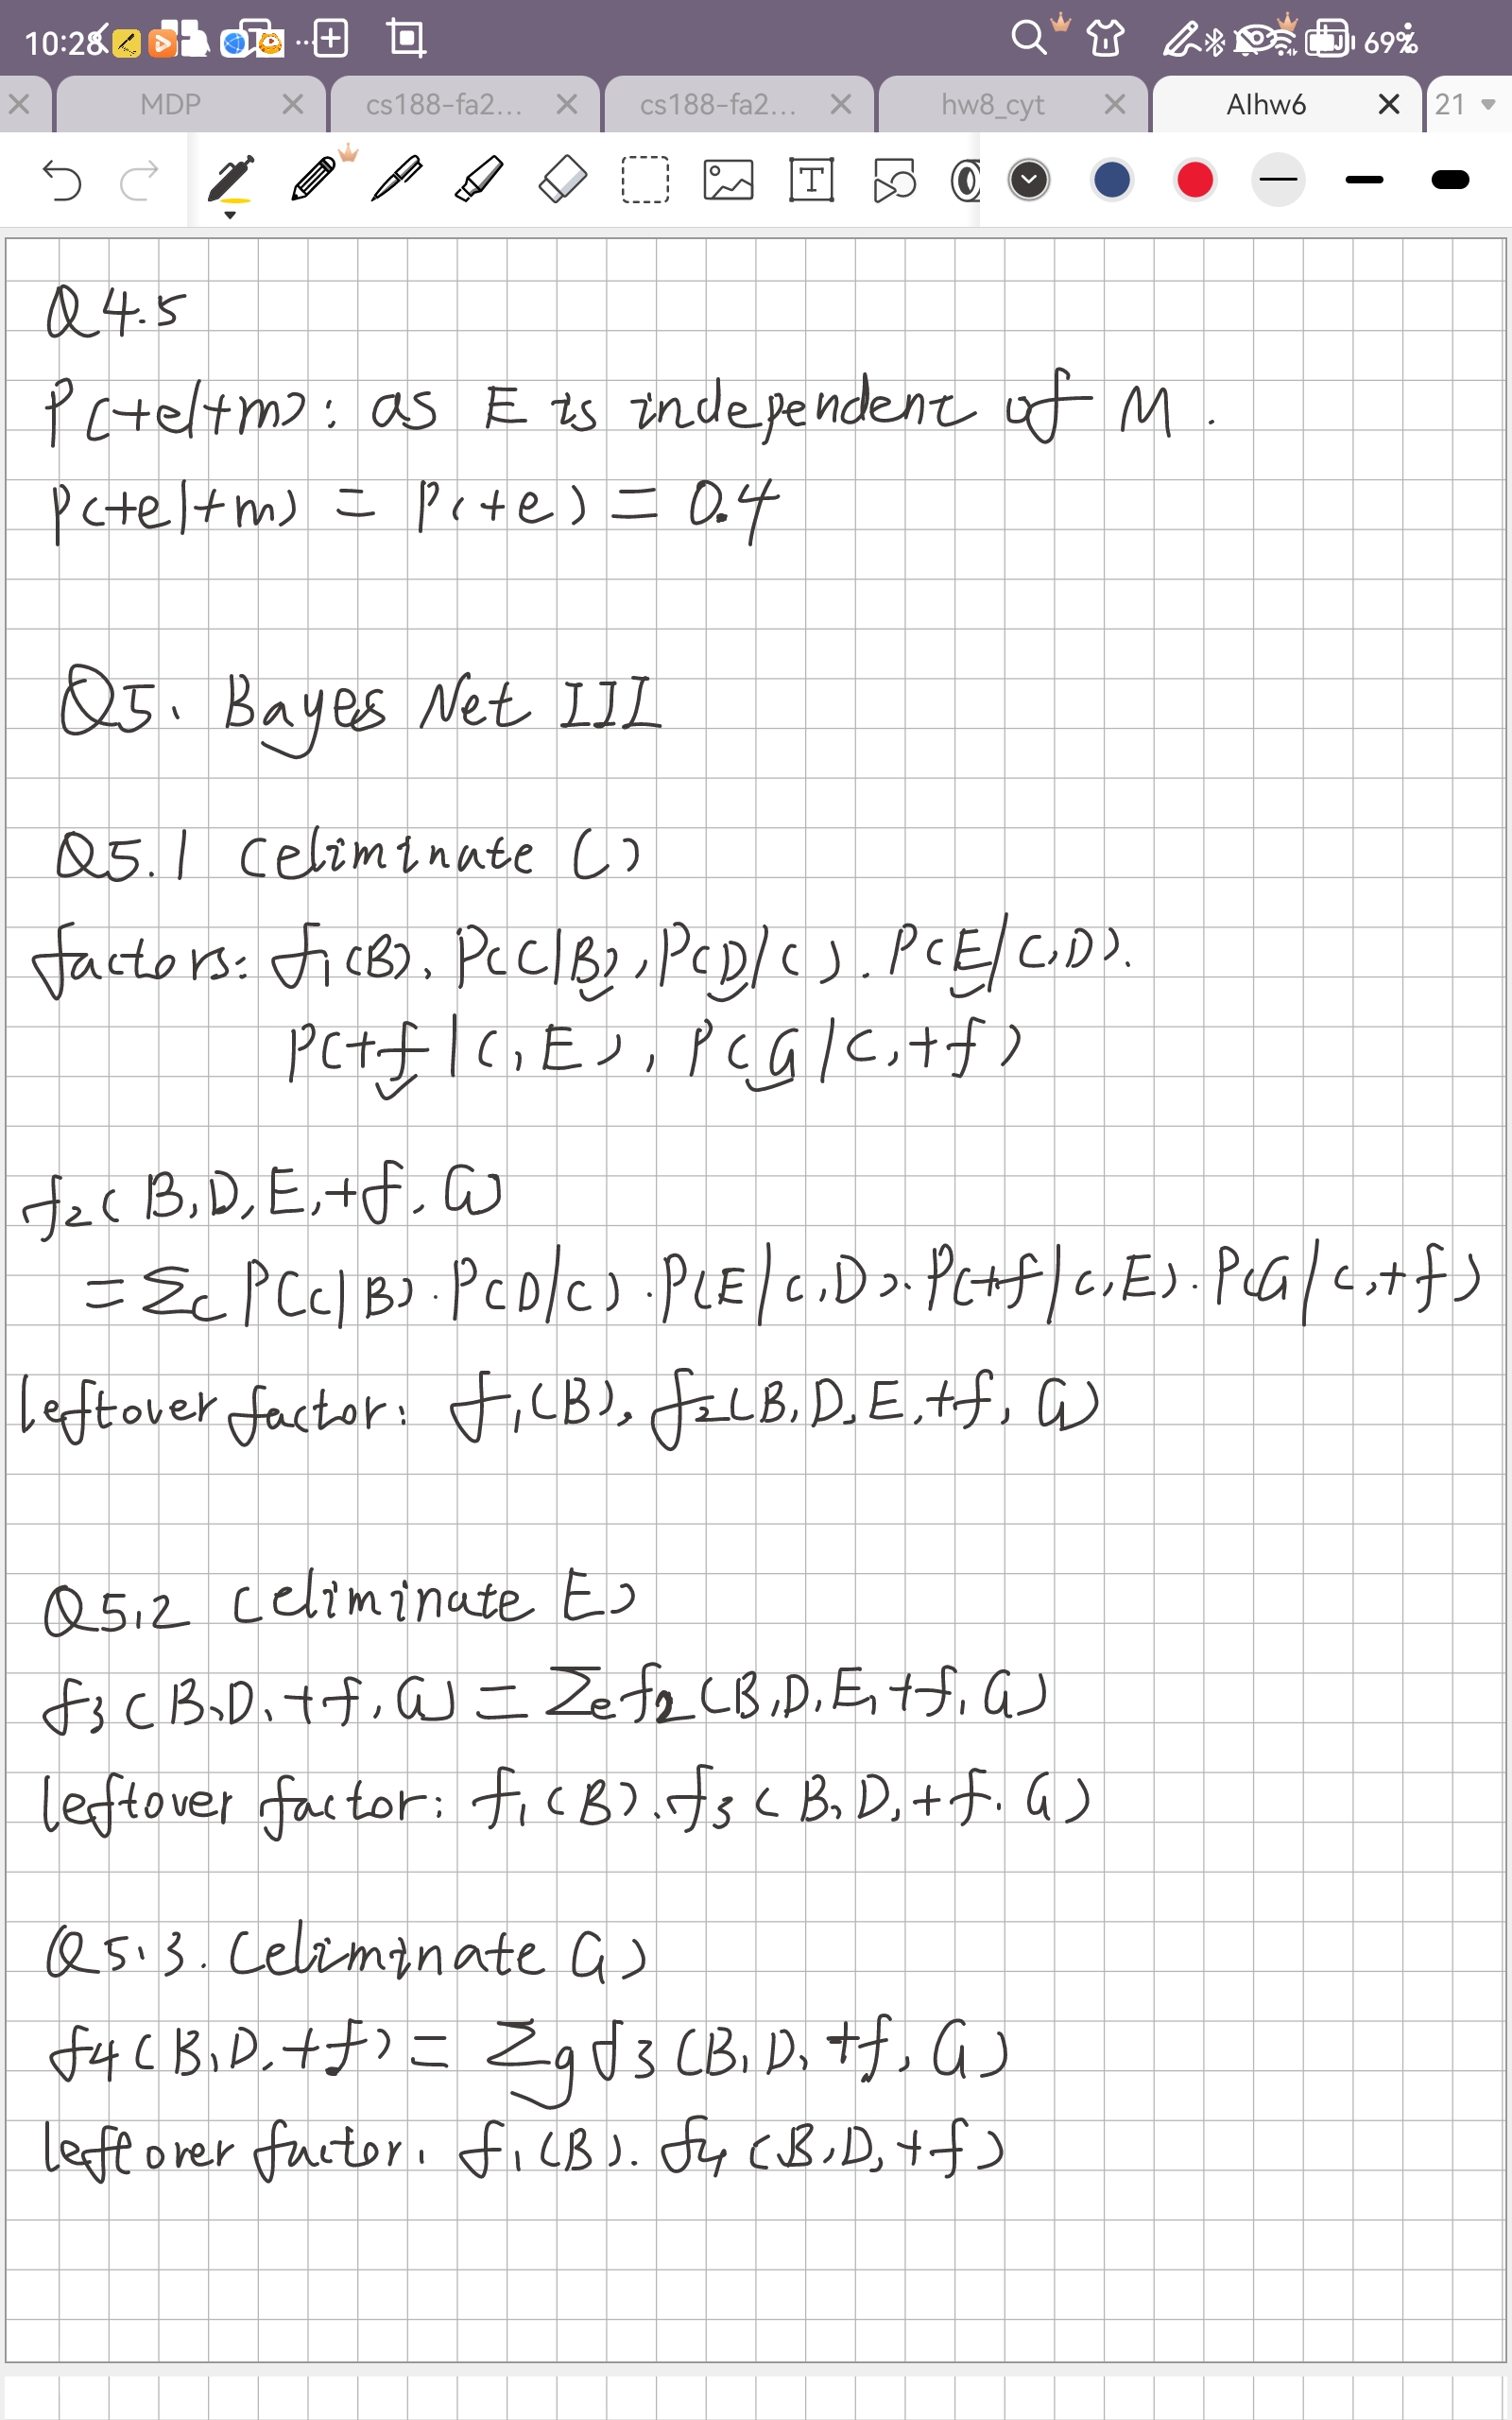 10:28
69%
MDP
cs188-fa2...
cs188-fa2...
hw8_cyt
AIhw6
21
Q4.5
P(+e|+m): as E is independent of M.
P(+e|+m) = P(+e) = 0.4
Q5. Bayes Net III
Q5.1 (eliminate C)
factors: f₁(B), P(C|B), P(D|C). P(E|C,D).
P(+f|C,E), P(G|C,+f)
f₂(B,D,E,+f,G)
= Σc P(c|B)·P(D|c)·P(E|c,D)·P(+f|c,E)·P(G|c,+f)
leftover factor: f₁(B), f₂(B,D,E,+f,G)
Q5.2 (eliminate E)
f₃(B,D,+f,G) = Σe f₂(B,D,E,+f,G)
leftover factor: f₁(B). f₃(B,D,+f,G)
Q5.3. (eliminate G)
f₄(B,D,+f) = Σg f₃(B,D,+f,G)
leftover factor: f₁(B). f₄(B,D,+f)